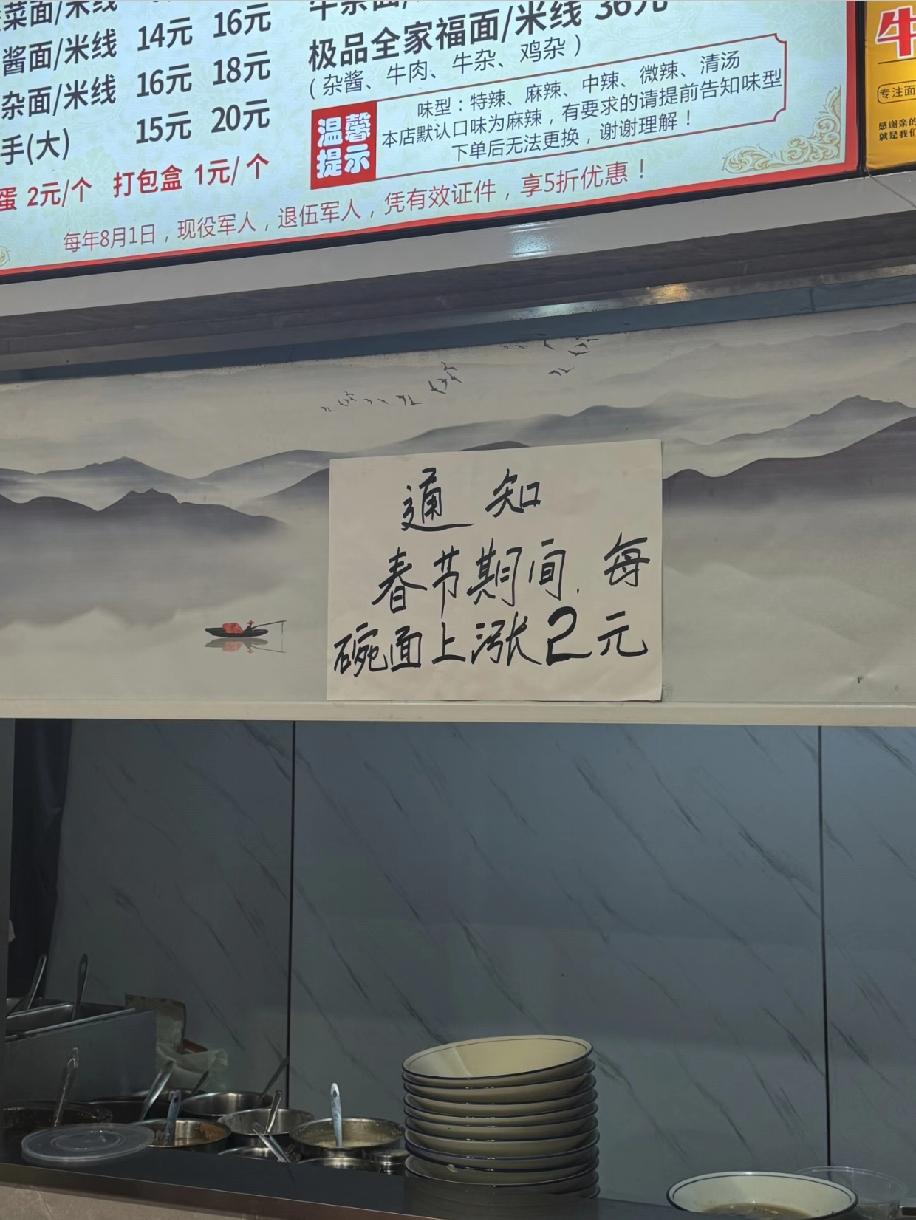 菜面/米线
14元 16元
酱面/米线
16元 18元
杂面/米线
15元 20元
手(大)
蛋 2元/个 打包盒 1元/个
36元
极品全家福面/米线
(杂酱、牛肉、牛杂、鸡杂)
温馨
提示
味型：特辣、麻辣、中辣、微辣、清汤
本店默认口味为麻辣，有要求的请提前告知味型
下单后无法更换，谢谢理解！
每年8月1日，现役军人，退伍军人，凭有效证件，享5折优惠！
牛
专注面
感谢亲的
就是我们
通知
春节期间，每
碗面上涨2元